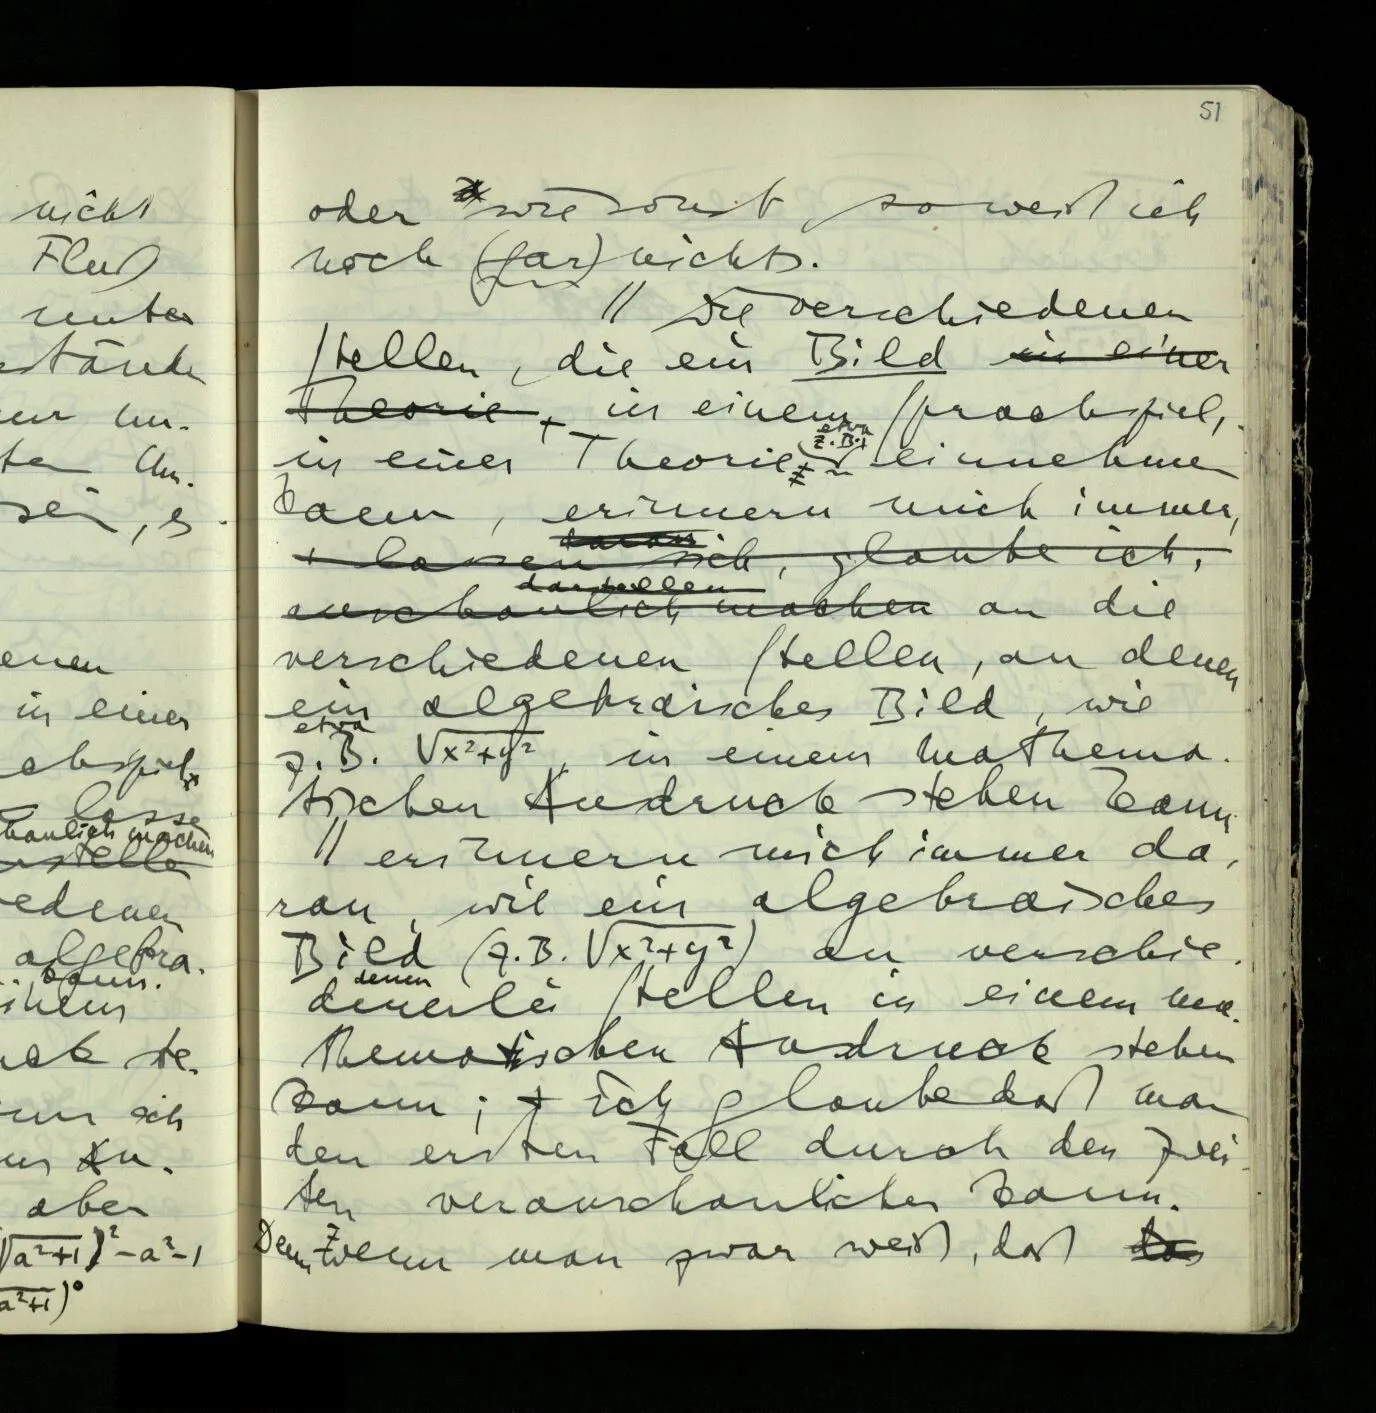 nicht
Fluß
unter
stände
Um-
sein, es
enen
in einer
achspiel,
lasse
haulich machen
stelle
edenen
algebra-
kann.
inem
uck ste-
ich
aber
√a²+1)² - a² - 1
a²+1)⁰
51
oder wie sonst so weiß ich
noch (gar) nichts.
// Die verschiedenen
Stellen, die ein Bild in einer
Theorie, in einem Sprachspiel,
etwa
z.B.
in einer Theorie einnehmen
kann, erinnern mich immer,
daran
lassen sich, glaube ich,
darstellen
anschaulich machen an die
verschiedenen Stellen, an denen
ein algebraisches Bild, wie
etwa
z.B. √x²+y², in einem mathema-
tischen Ausdruck stehen kann
// erinnern mich immer da-
ran, wie ein algebraisches
Bild (z.B. √x²+y²) an verschie-
denen
denerlei Stellen in einem ma-
thematischen Ausdruck stehen
kann; Ich glaube daß man
den ersten Fall durch den zwei-
ten veranschaulichen kann.
Denn wenn man zwar weiß, daß das